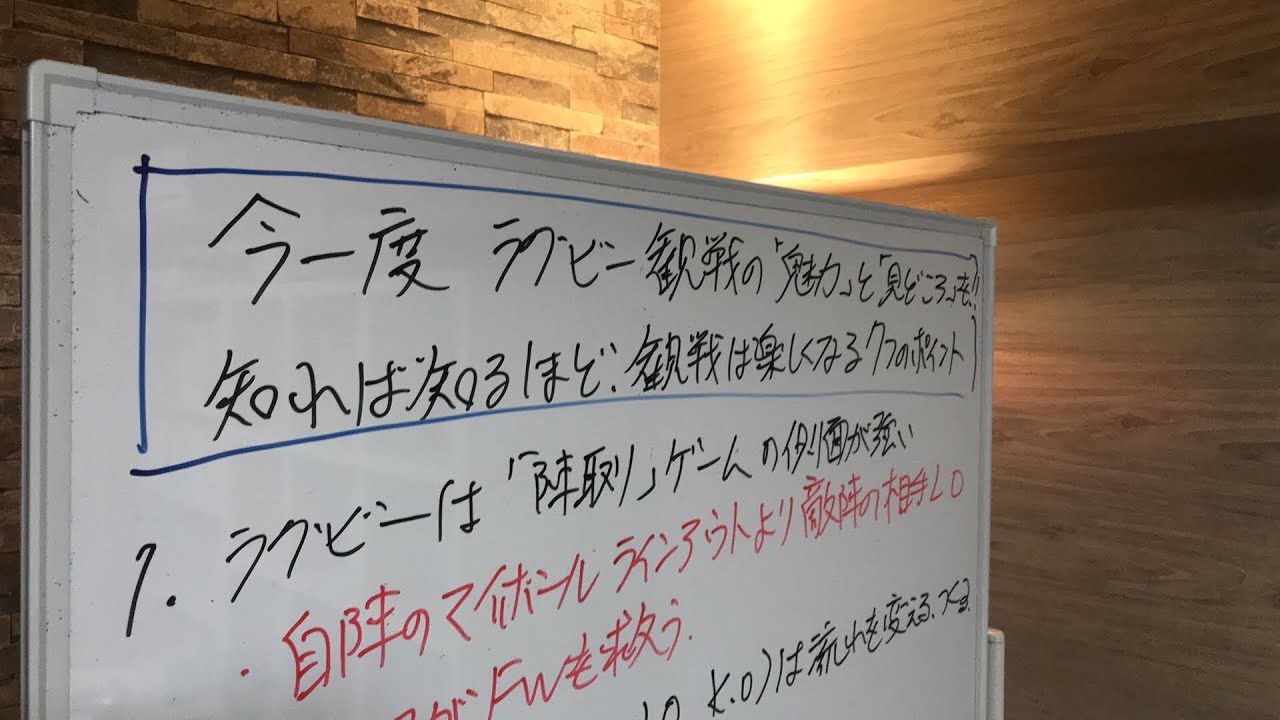 今一度 ラグビー観戦の「魅力」と「見どころ」を!!
知れば知るほど、観戦は楽しくなる7つのポイント
1. ラグビーは「陣取り」ゲームの側面が強い
・自陣のマイボールラインアウトより敵陣の相手LO
がFWを救う.
K.O)は流れを変える.